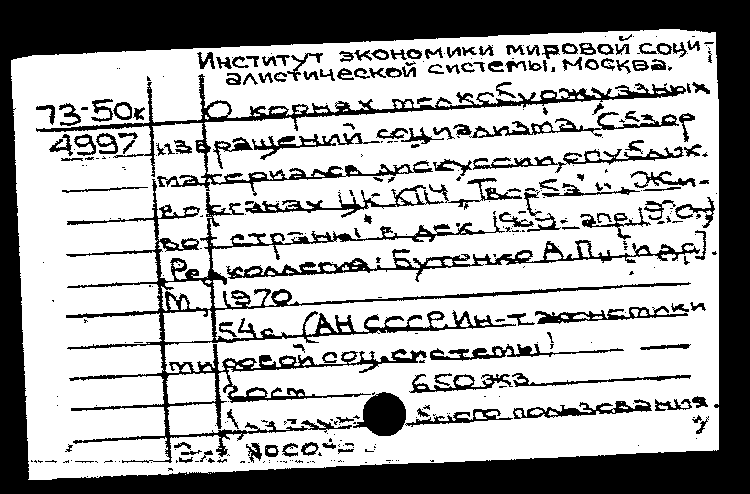 Институт экономики мировой соци-
алистической системы, Москва.
73-50к
4997
О корнях мелкобуржуазных
извращений социализма. Обзор
материалов дискуссии, опублик.
в органах ЦК КПЧ „Творба" и „Жи-
вот страны" в дек. 1969 - апр. 1970.)
Редколлегия: Бутенко А.П., [и др].
М., 1970.
54с. (АН СССР. Ин-т экономики
мировой соц. системы)
Рост. 650 экз.
бного пользования.